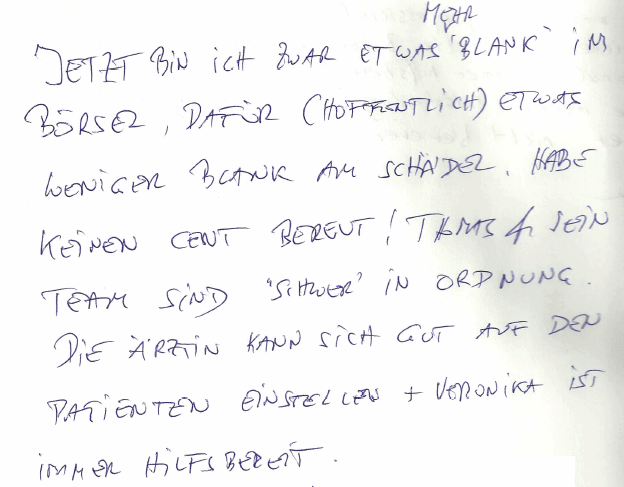 MEHR
JETZT BIN ICH ZWAR ETWAS 'BLANK' IM
BÖRSEL, DAFÜR (HOFFENTLICH) ETWAS
WENIGER BLANK AM SCHÄDEL. HABE
KEINEN CENT BEREUT! THOMAS & SEIN
TEAM SIND 'SCHWER' IN ORDNUNG.
DIE ÄRZTIN KANN SICH GUT AUF DEN
PATIENTEN EINSTELLEN + VERONIKA IST
IMMER HILFSBEREIT.